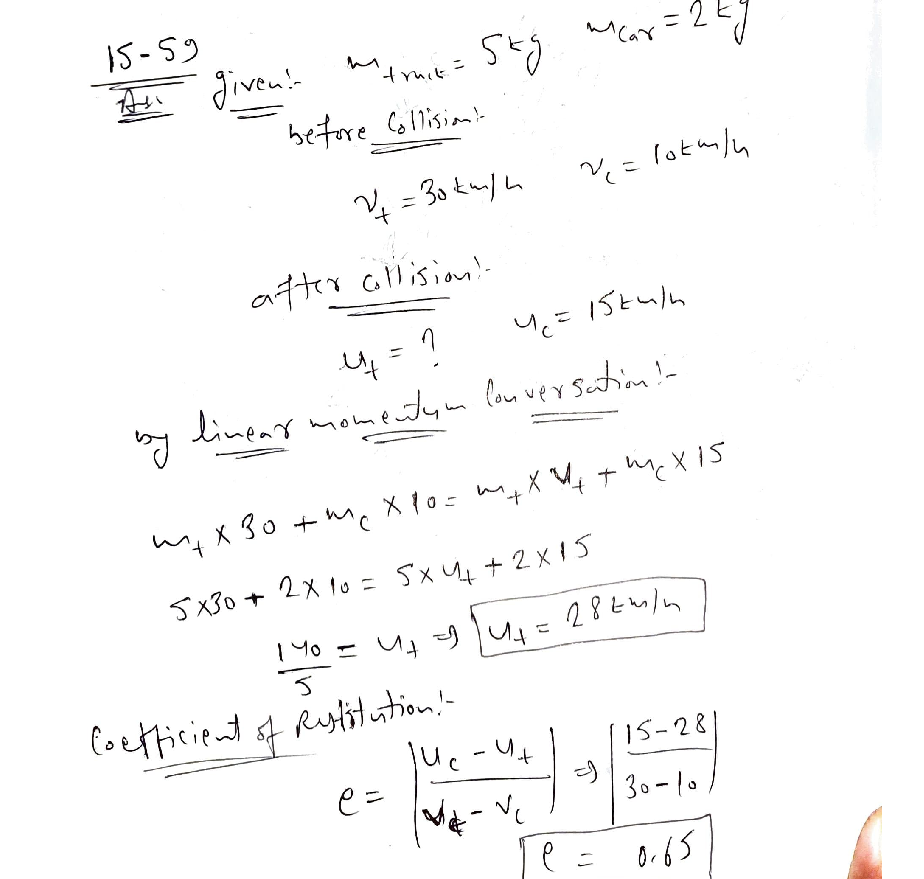 15-59
Ans given:- m truck = 5kg m car = 2kg
before Collision:-
v_t = 30 km/h v_c = 10km/h
after collision:-
u_t = ? u_c = 15km/h
by linear momentum Conversation:-
m_t x 30 + m_c x 10 = m_t x u_t + m_c x 15
5x30 + 2x10 = 5x u_t + 2x15
140/5 = u_t => u_t = 28 km/h
Coefficient of Restitution:-
e = |u_c - u_t / v_t - v_c| => |15-28 / 30-10|
e = 0.65